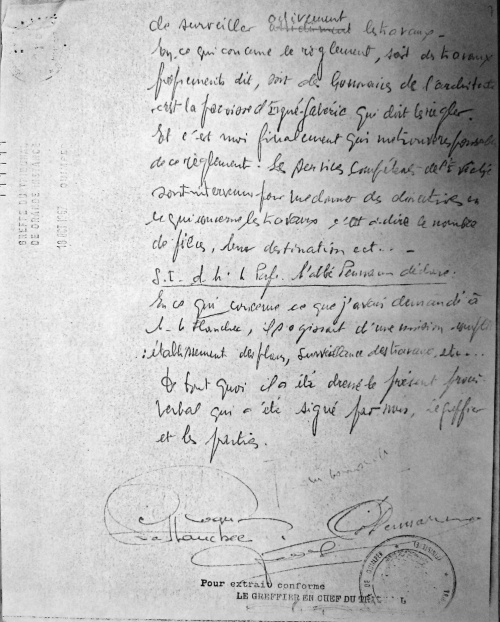 de surveiller activement les travaux.
En ce qui concerne le règlement, soit des travaux
proprements dit, soit des honoraires de l'architecte
c'est la paroisse d'Ergué-Gabéric qui doit les régler.
Et c'est moi finalement qui me trouve responsable
de ce règlement. Les Services de l'Evêché
sont intervenus pour me donner des directives en
ce qui concerne les travaux c'est à dire le nombre
de pièces, leur destination ect...
S.I. d l'abbé déclare.
En ce qui concerne ce que j'avais demandé à
M. Le Flanchec, il s'agissait d'une mission complète
établissement des plans, surveillance des travaux, etc...
De tout quoi il a été dressé le présent procès
verbal qui a été signé par nous, le greffier
et les parties.
Le Flanchec
Pour extrait conforme
LE GREFFIER EN CHEF DU
GREFFE DU
DE GRANDE INSTANCE
QUIMPER